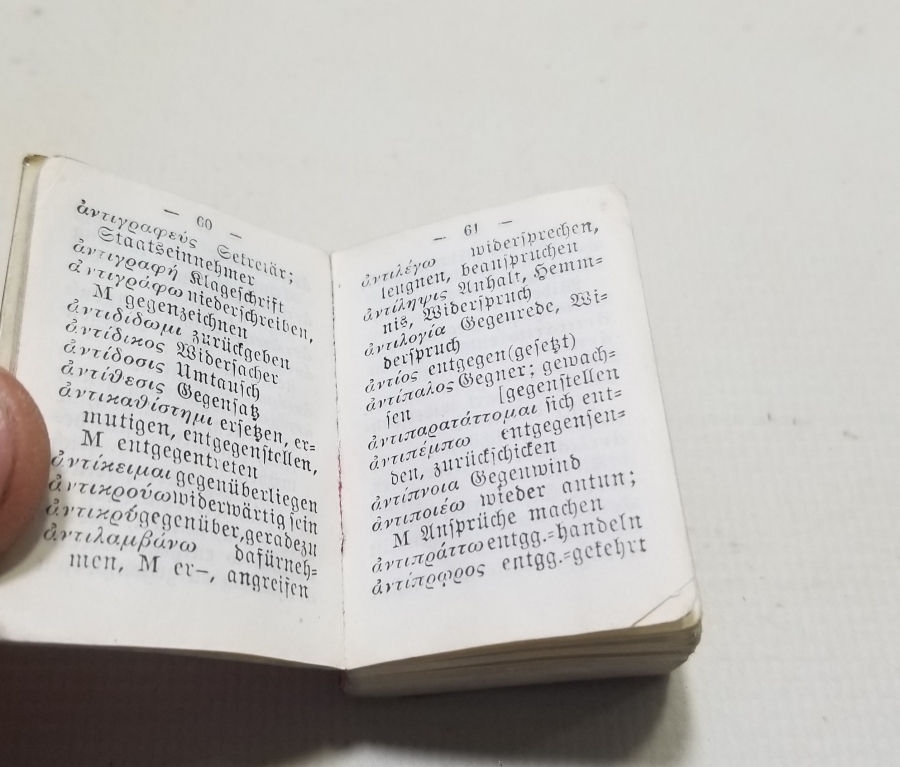 — 60 —
ἀντιγραφεύς Sekretär;
Staatseinnehmer
ἀντιγραφή Klageschrift
ἀντιγράφω niederschreiben,
M gegenzeichnen
ἀντιδίδωμι zurückgeben
ἀντίδικος Widersacher
ἀντίδοσις Umtausch
ἀντίθεσις Gegensatz
ἀντικαθίστημι ersetzen, er=
mutigen, entgegenstellen,
M entgegentreten
ἀντίκειμαι gegenüberliegen
ἀντικρούω widerwärtig sein
ἀντικρύ gegenüber, geradezu
ἀντιλαμβάνω dafürneh=
men, M er–, angreifen
— 61 —
ἀντιλέγω widersprechen,
leugnen, beanspruchen
ἀντίληψις Anhalt, Hemm=
nis, Widerspruch
ἀντιλογία Gegenrede, Wi=
derspruch
ἀντίος entgegen(gesetzt)
ἀντίπαλος Gegner; gewach=
sen [gegenstellen
ἀντιπαρατάττομαι sich ent=
ἀντιπέμπω entgegensen=
den, zurückschicken
ἀντίπνοια Gegenwind
ἀντιποιέω wieder antun;
M Ansprüche machen
ἀντιπράττω entgg.=handeln
ἀντίπρῳρος entgg.=gekehrt